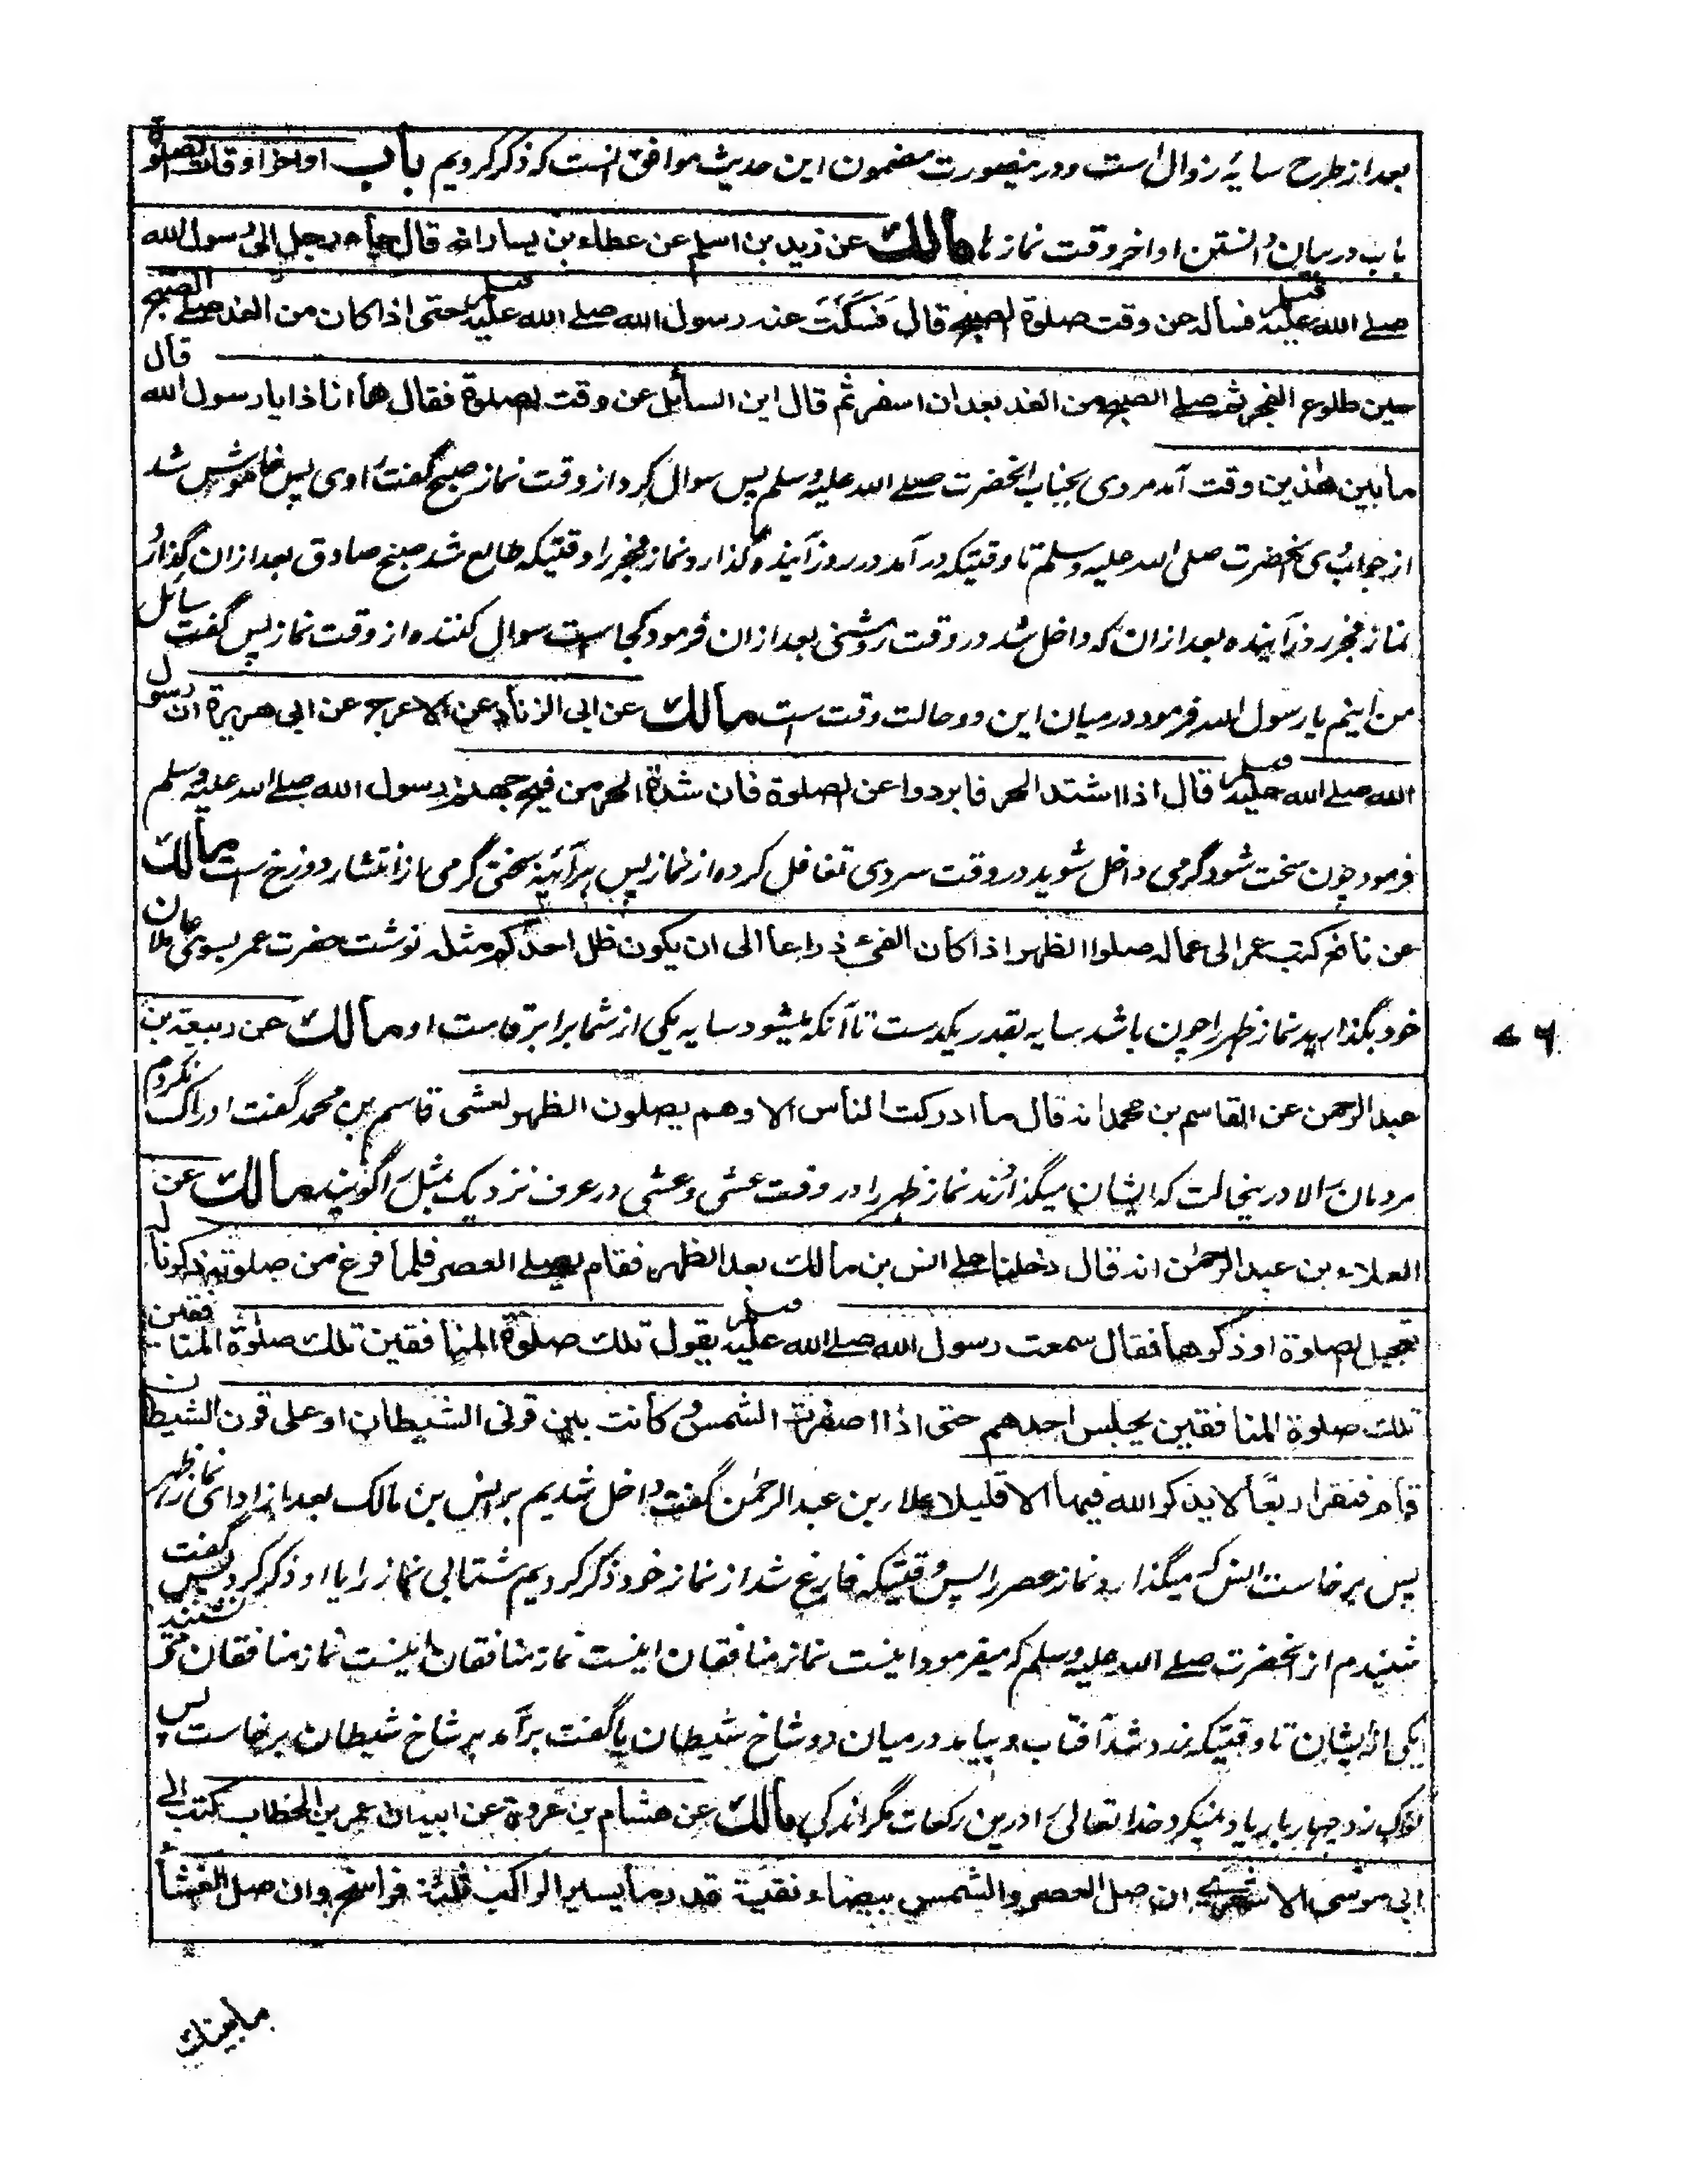 بعد از طرح سایۀ زوال است و درینصورت مضمون این حدیث موافق آنست که ذکر کردیم باب اواخر اوقات الصلوة
باب در بیان دانستن اواخر وقت نمازها مالك عن زيد بن اسلم عن عطاء بن يسار انه قال جاء رجل الى رسول الله
صلے الله عليه وسلم فساله عن وقت صلوة الصبح قال فسكت عنه رسول الله صلے الله عليه وسلم حتى اذا كان من الغد صلے الصبح
حين طلوع الفجر ثم صلے الصبح من الغد بعد ان اسفر ثم قال اين السائل عن وقت الصلوة فقال هاانا ذا يا رسول الله قال
ما بين هذين وقت آمد مردی بجناب آنحضرت صلے الله علیه وسلم پس سوال کرد از وقت نماز صبح گفت راوی پس خاموش شد
از جواب وی آنحضرت صلی الله علیه وسلم تا وقتیکه در آمد در روز آینده گذارد نماز فجر را وقتیکه طالع شد صبح صادق بعد ازان گذارد
نماز فجر روز آینده بعد ازان که داخل شد در وقت روشنی بعد ازان فرمود کجاست سوال کننده از وقت نماز پس گفت سائل
من اینم یا رسول الله فرمود درمیان این دو حالت وقت ست مالك عن ابى الزناد عن الاعرج عن ابى هريرة ان رسول
الله صلے الله عليه وسلم قال اذا اشتد الحر فابردوا عن الصلوة فان شدة الحر من فيح جهنم رسول الله صلے الله علیه وسلم
فرمود چون سخت شود گرمی داخل شوید در وقت سردی تغافل کرده از نماز پس هرآئینه سختی گرمی از انتشار دوزخ ست مالك
عن نافع كتب عمر الى عماله صلوا الظهر اذا كان الفئ ذراعا الى ان يكون ظل احدكم مثله نوشت حضرت عمر بسوی عاملان
خود بگذارید نماز ظهر را چون باشد سایه بقدر یکدست تا آنکه میشود سایه یکی از شما برابر قامت او مالك عن ربيعة بن
عبد الرحمن عن القاسم بن محمد انه قال ما ادركت الناس الا وهم يصلون الظهر بعشى قاسم بن محمد گفت ادراک نکردم
مردمان را الا درینحالت که ایشان میگذارند نماز ظهر را در وقت عشی و عشی در عرف نزدیک بمثل را گویند مالك عن
العلاء بن عبد الرحمن انه قال دخلنا على انس بن مالك بعد الظهر فقام يصلے العصر فلما فرغ من صلوته ذكرنا له
تعجيل الصلوة او ذكرها فقال سمعت رسول الله صلے الله عليه وسلم يقول تلك صلوة المنافقين تلك صلوة المنافقين
تلك صلوة المنافقين يجلس احدهم حتى اذا اصفرت الشمس و كانت بين قرنى الشيطان او على قرن الشيطان
قام فنقر اربعا لا يذكر الله فيها الا قليلا علاء بن عبد الرحمن گفت داخل شدیم بر انس بن مالک بعد از ادای نماز ظهر
پس برخاست انس که میگذارد نماز عصر را پس وقتیکه فارغ شد از نماز خود ذکر کردیم شتابی نماز را یا او ذکر کرد پس گفت
شنیدم از آنحضرت صلے الله علیه وسلم که میفرمود اینست نماز منافقان اینست نماز منافقان اینست نماز منافقان می نشیند
یکی از ایشان تا وقتیکه زرد شد آفتاب و بیاید درمیان دو شاخ شیطان یا گفت برآید بر شاخ شیطان برخاست پس
نوک زد چهار بار یاد نمیکرد خدا تعالی را درین رکعات مگر اندکی مالك عن هشام بن عروة عن ابيه ان عمر بن الخطاب كتب الے
ابى موسى الاشعرى ان صل العصر والشمس بيضاء نقية قدر ما يسير الراكب ثلثة فراسخ وان صل العشاء
٤٦
مابينك